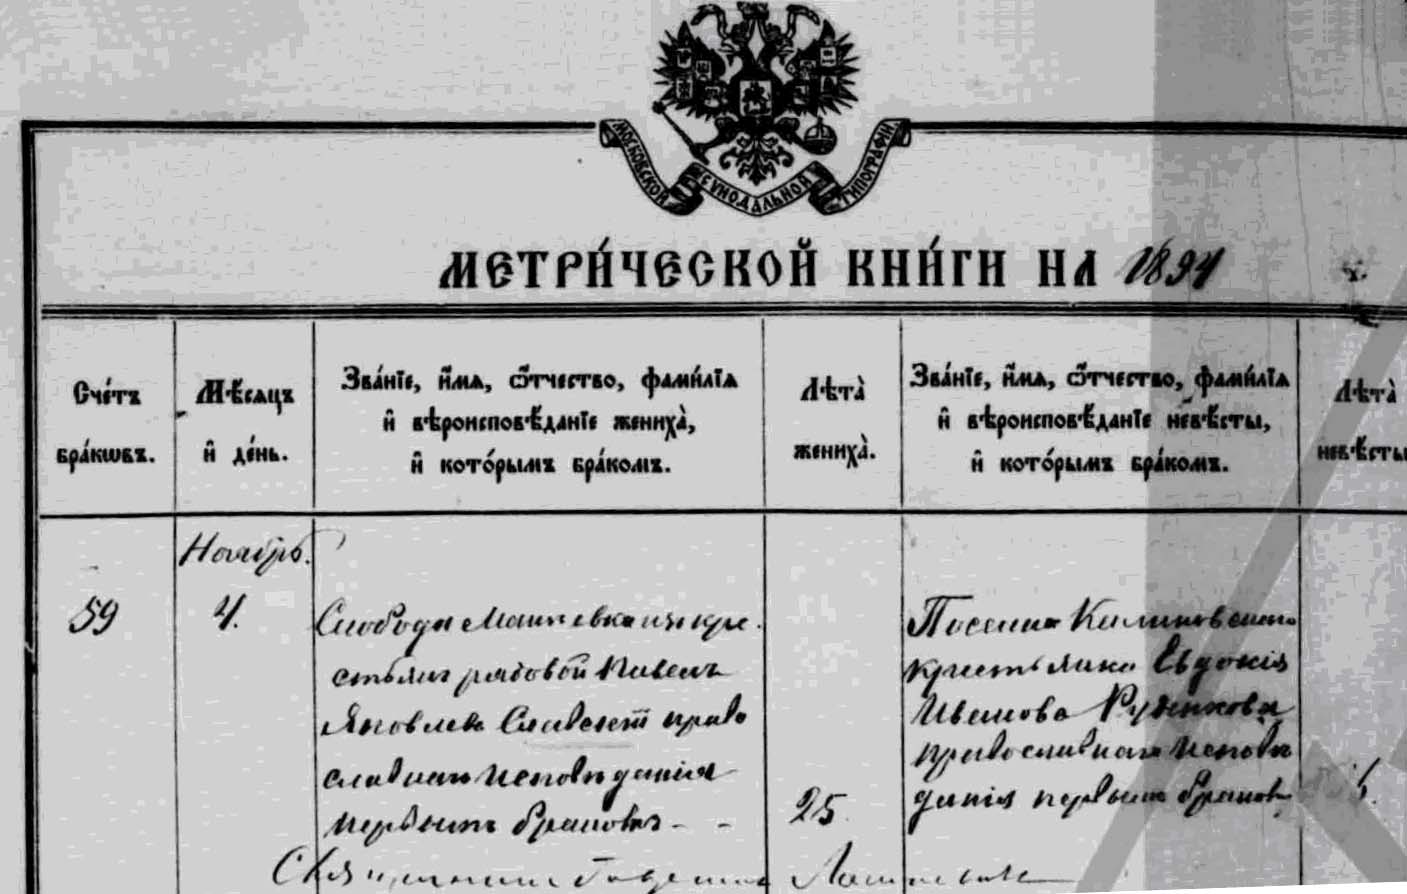 МОСКОВСКОЙ СѴНОДАЛЬНОЙ ТИПОГРАФІИ
МЕТРИ́ЧЕСКОЙ КНИ́ГИ НА 1894
Сче́тъ
бра́кѡвъ.
Мѣ́сяцъ
и҆ де́нь.
Зва́нїе, и҆́мѧ, ѻ҆́тчество, фами́лїѧ
и҆ вѣроисповѣ́данїе жениха̀,
и҆ кото́рымъ бра́комъ.
Лѣта̀
жениха̀.
Зва́нїе, и҆́мѧ, ѻ҆́тчество, фами́лїѧ
и҆ вѣроисповѣ́данїе невѣ́сты,
и҆ кото́рымъ бра́комъ.
Лѣта̀
невѣ́сты
Ноябрь.
59
4.
Слобода изъ кре
стьянъ рядовой Павелъ
Яковлевъ право
славнаго исповѣданія
первымъ бракомъ - -
25.
Поселка Калиновскаго
крестьянка Евдокія
Иванова Руденкова
православнаго исповѣ
данія первымъ бракомъ